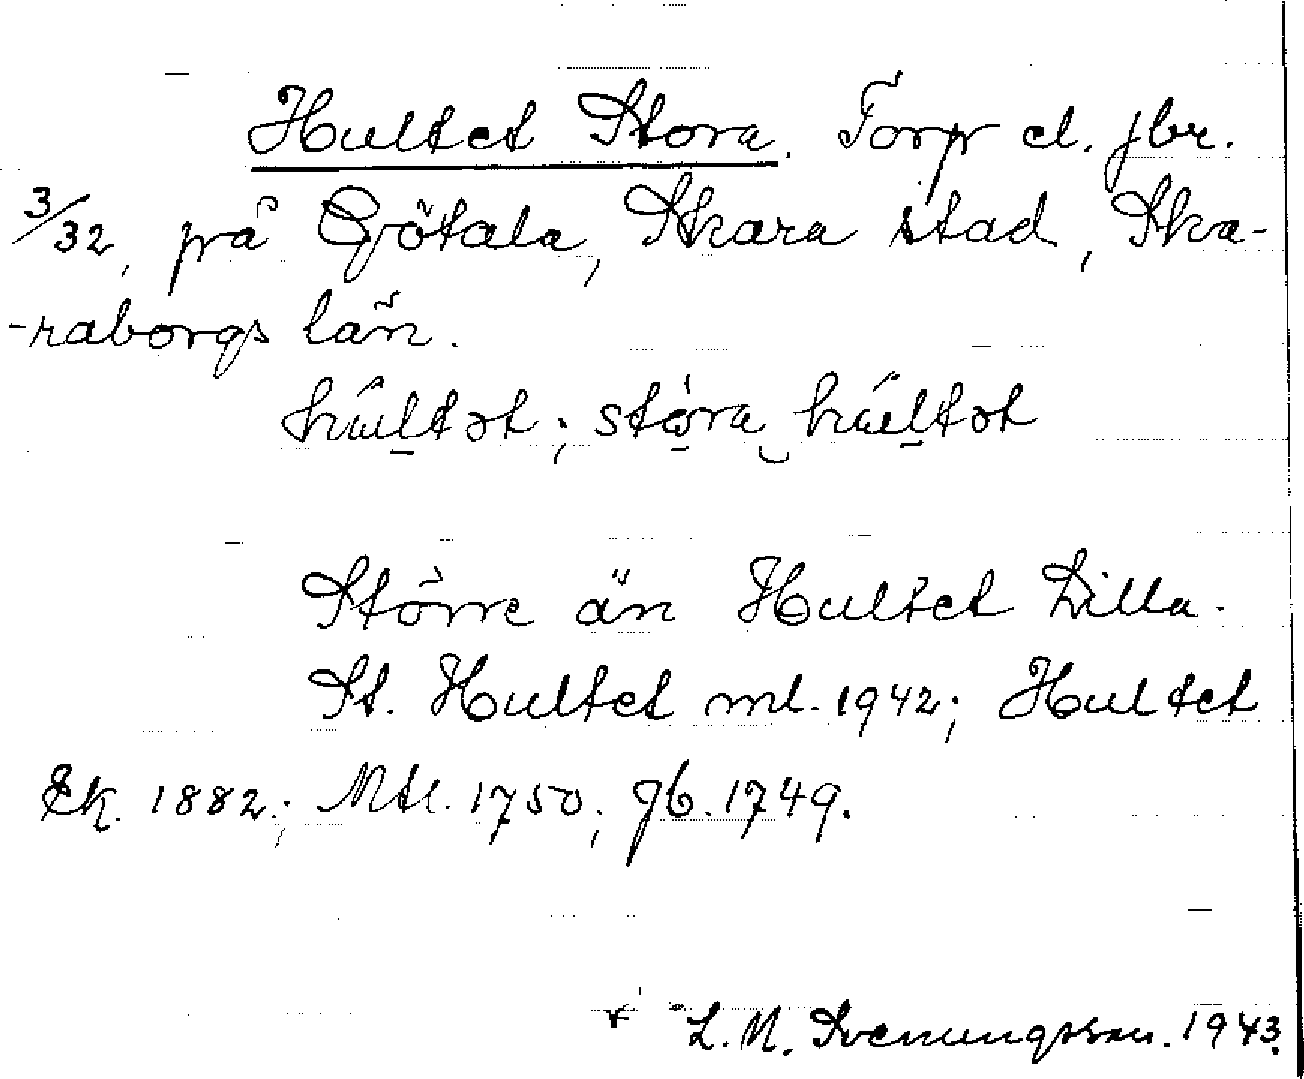 Hultet Stora. Torp el. jbr.
3/32, på Götala, Skara stad, Ska-
-raborgs län.
húltət; stòra húltət
Större än Hultet Lilla.
St. Hultet ml. 1942; Hultet
Ek. 1882; Mtl. 1750; gb. 1749.
L. M. Svenungsson. 1943.